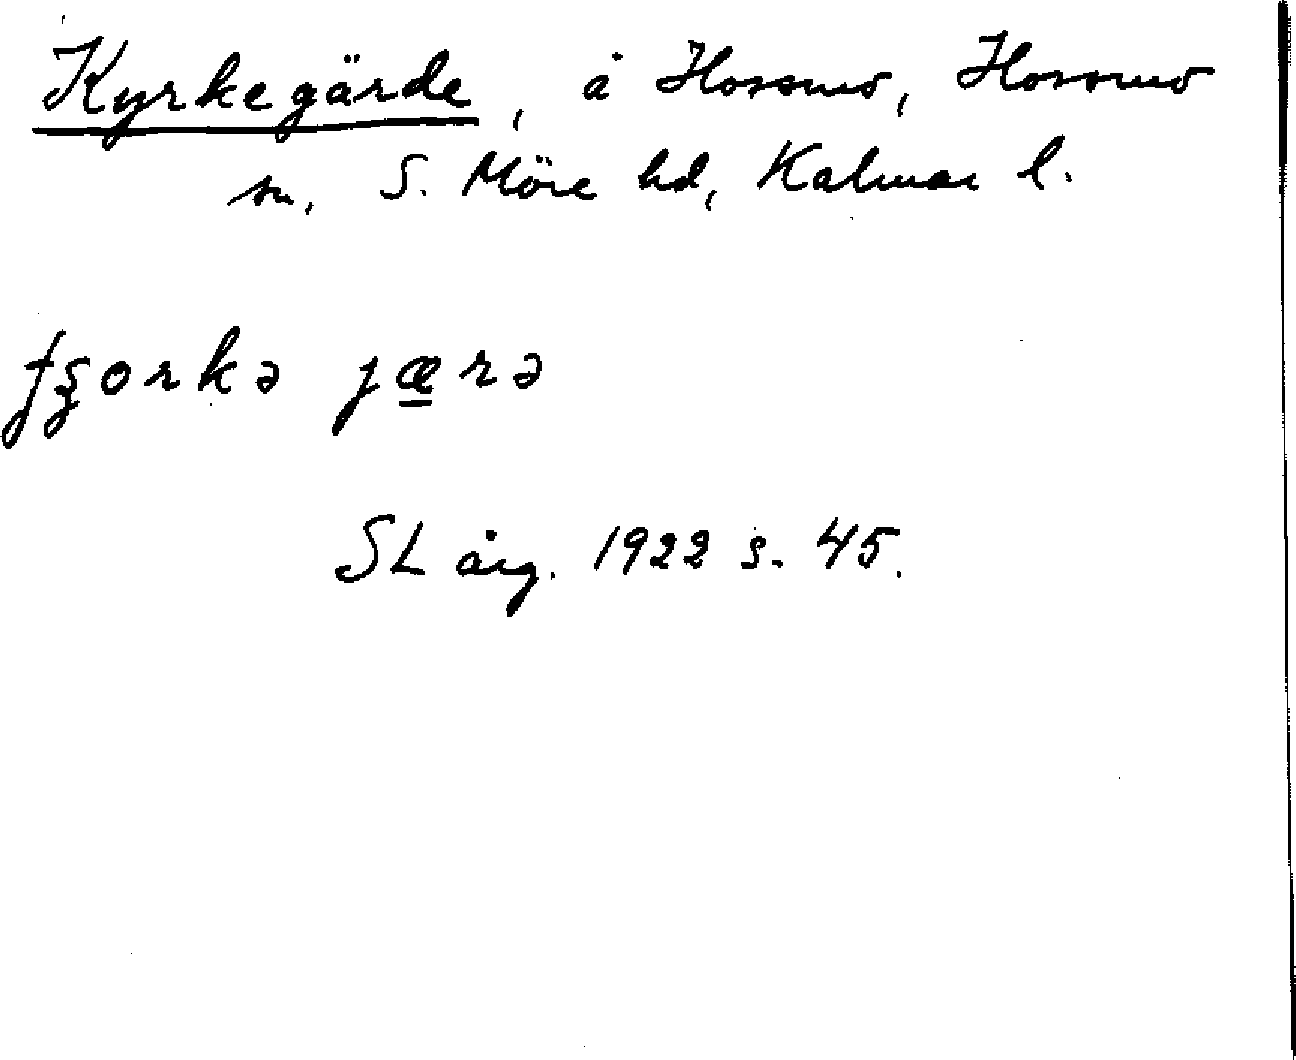 Kyrkegärde, å Hossmo, Hossmo
sn, S. Möre hd, Kalmar l.
jærə
SL årg. 1922 s. 45.